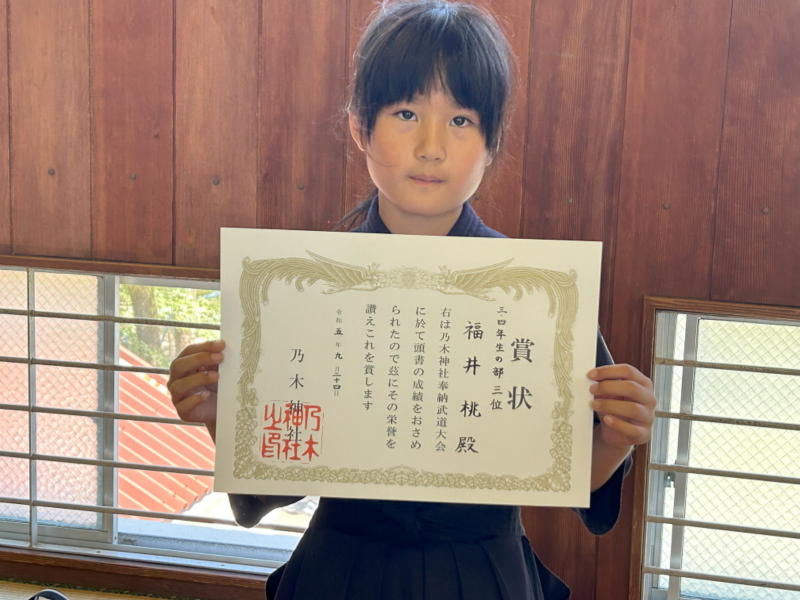 賞状
三・四年生の部 三位
福井 桃 殿
右は乃木神社奉納武道大会
に於て頭書の成績をおさめ
られたので茲にその栄誉を
讃えこれを賞します
令和五年九月二十四日
乃木神社
乃木
神社
之印